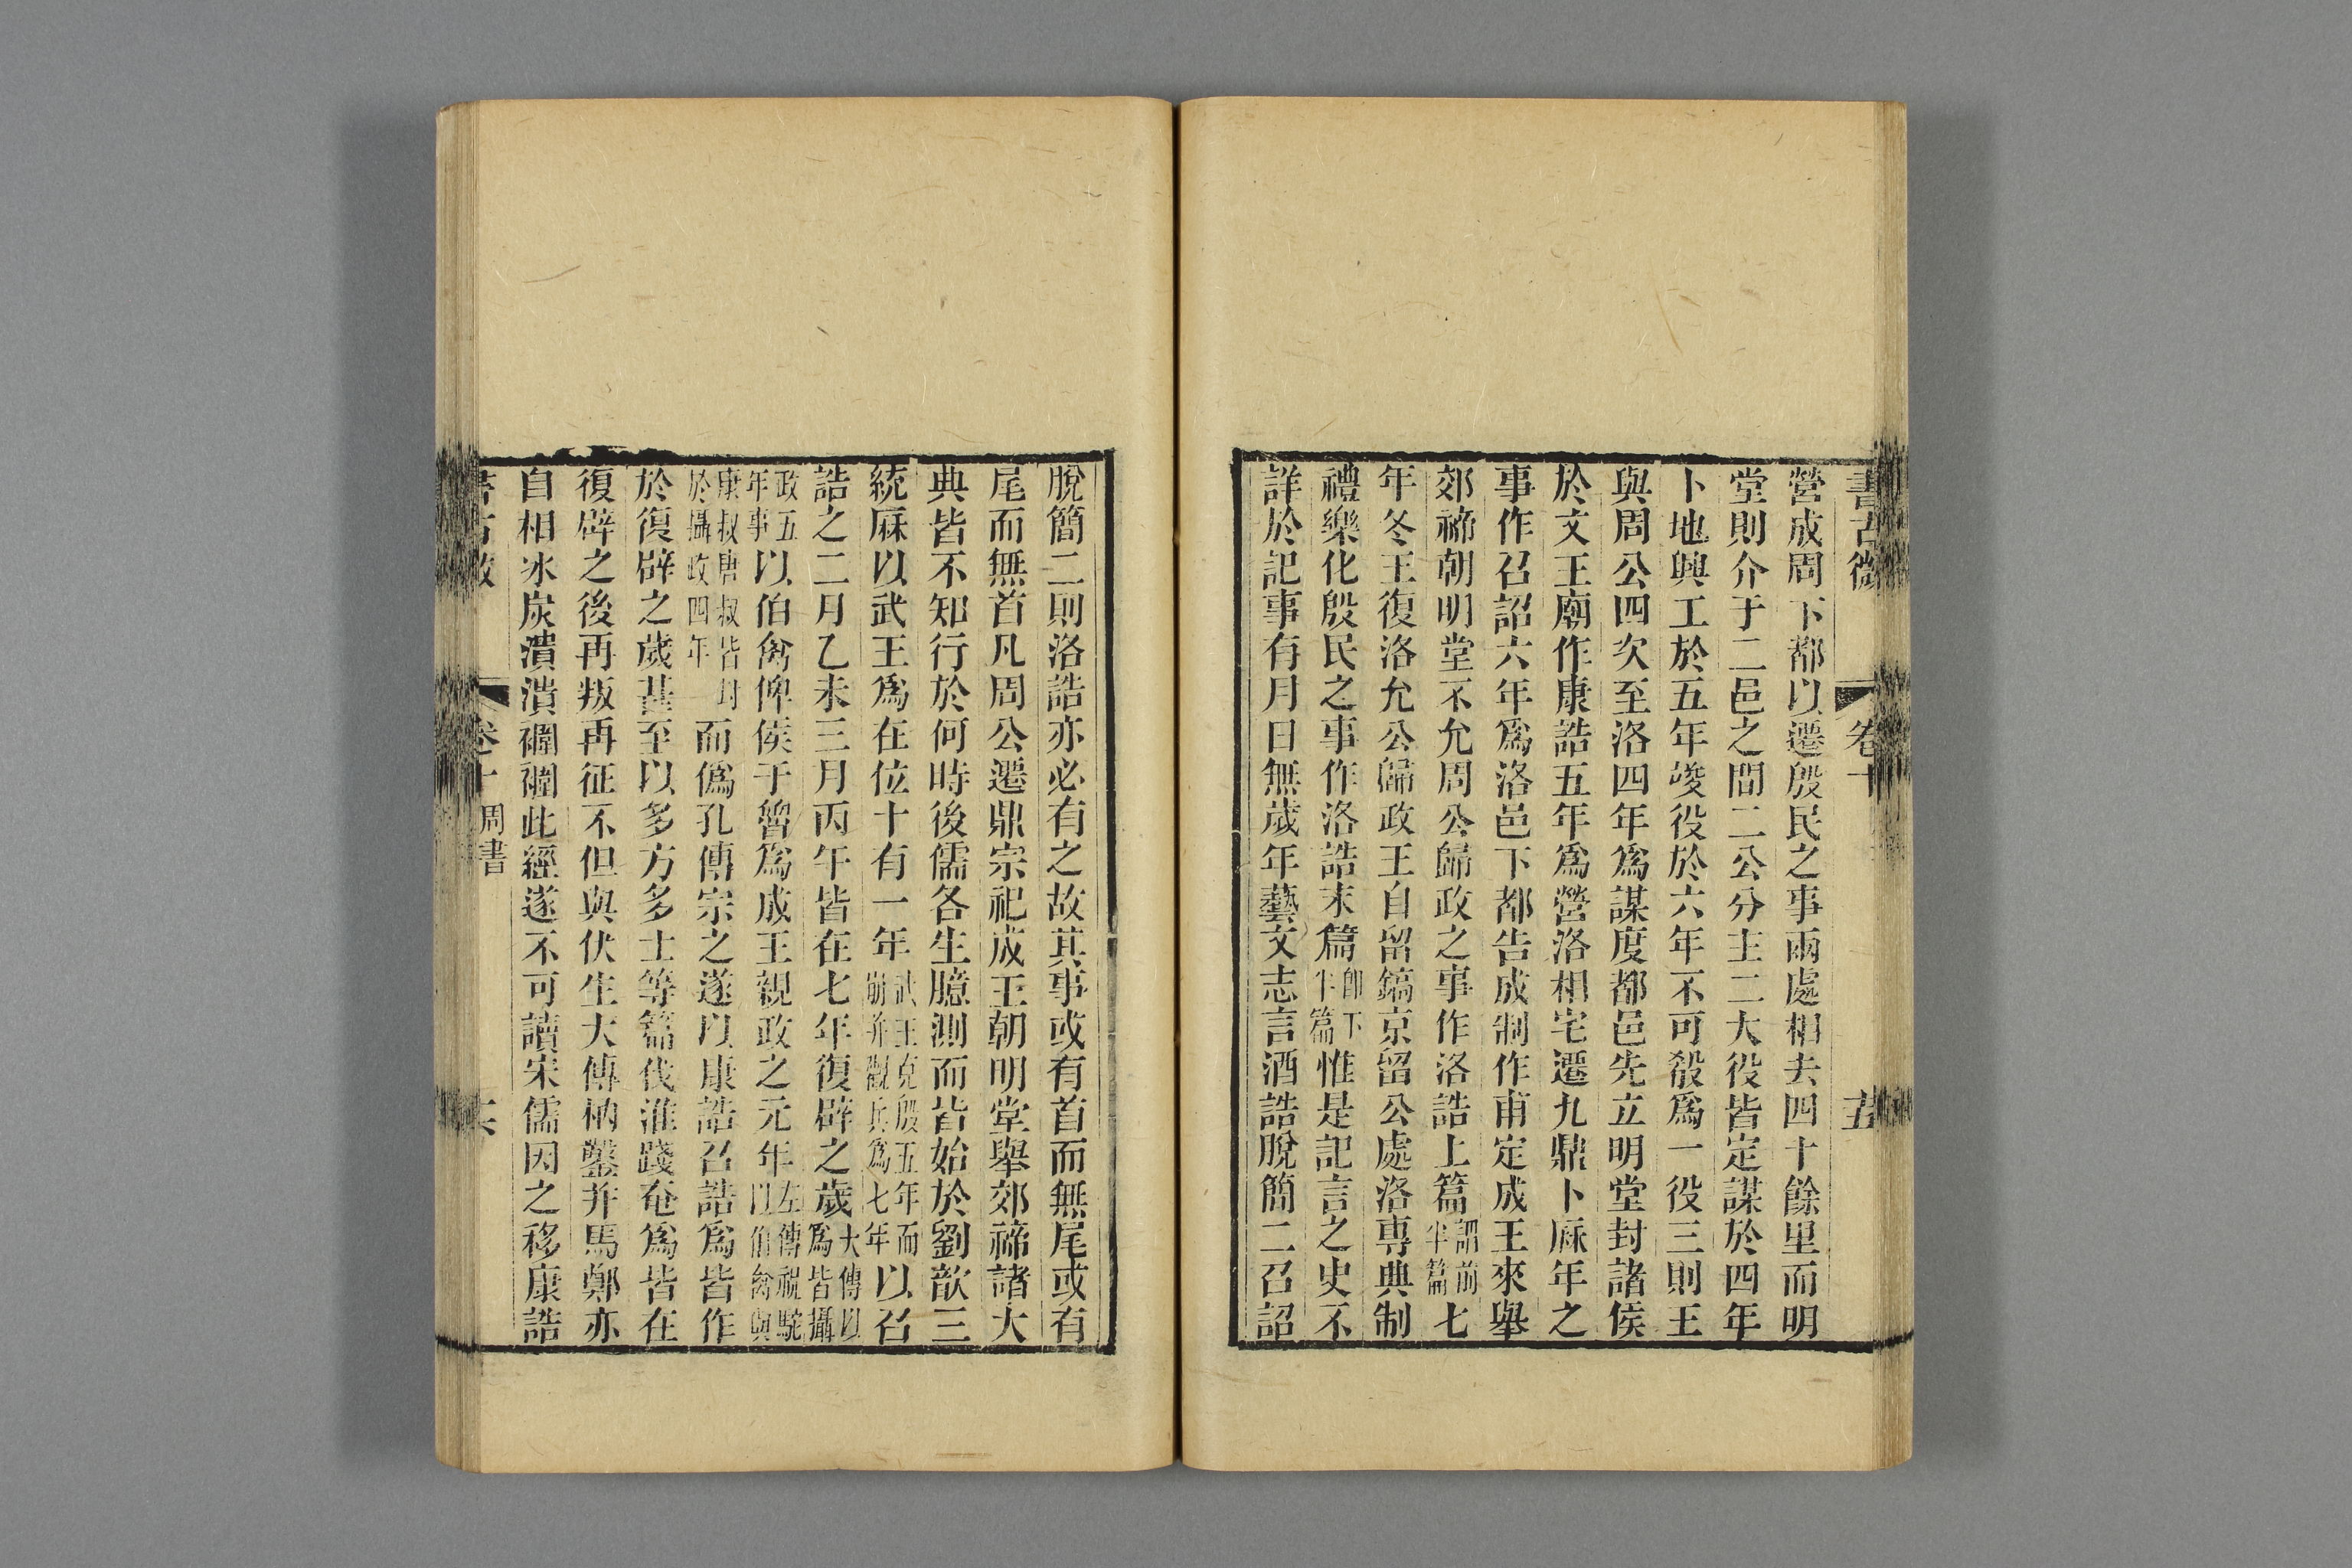 書古微 卷十 十五
營成周下都以遷殷民之事兩處相去四十餘里而明
堂則介于二邑之間二公分主二大役皆定謀於四年
卜地興工於五年竣役於六年不可殽爲一役三則王
與周公四次至洛四年爲謀度都邑先立明堂封諸侯
於文王廟作康誥五年爲營洛相宅遷九鼎卜厤年之
事作召詔六年爲洛邑下都告成制作甫定成王來舉
郊禘朝明堂不允周公歸政之事作洛誥上篇謂前半篇七
年冬王復洛允公歸政王自留鎬京留公處洛專典制
禮樂化殷民之事作洛誥末篇卽下半篇惟是記言之史不
詳於記事有月日無歲年藝文志言酒誥脫簡二召詔
脫簡二則洛誥亦必有之故其事或有首而無尾或有
尾而無首凡周公遷鼎宗祀成王朝明堂舉郊禘諸大
典皆不知行於何時後儒各生臆測而皆始於劉歆三
統厤以武王爲在位十有一年武王克殷五年而崩并觀兵爲七年以召
誥之二月乙未三月丙午皆在七年復辟之歲大傳以爲皆攝
政五年事以伯禽俾侯于魯爲成王親政之元年左傳祝鮀以伯禽與
康叔唐叔皆封於攝政四年而僞孔傳宗之遂以康誥召誥爲皆作
於復辟之歲甚至以多方多士等篇伐淮踐奄爲皆在
復辟之後再叛再征不但與伏生大傳枘鑿并馬鄭亦
自相冰炭潰潰襽襽此經遂不可讀宋儒因之移康誥
書古微 卷十 周書 十六